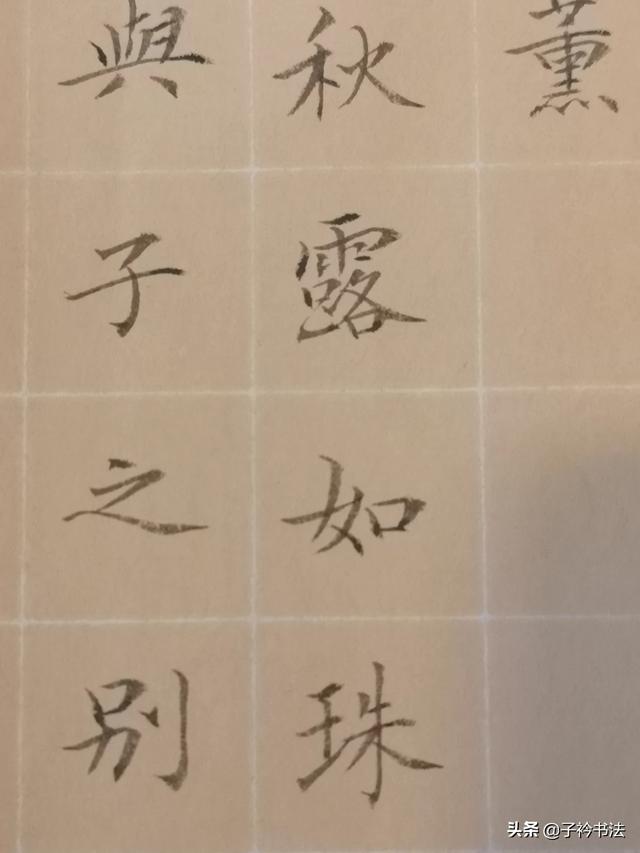 薫
秋露如珠
與子之别
头条 @子衿书法